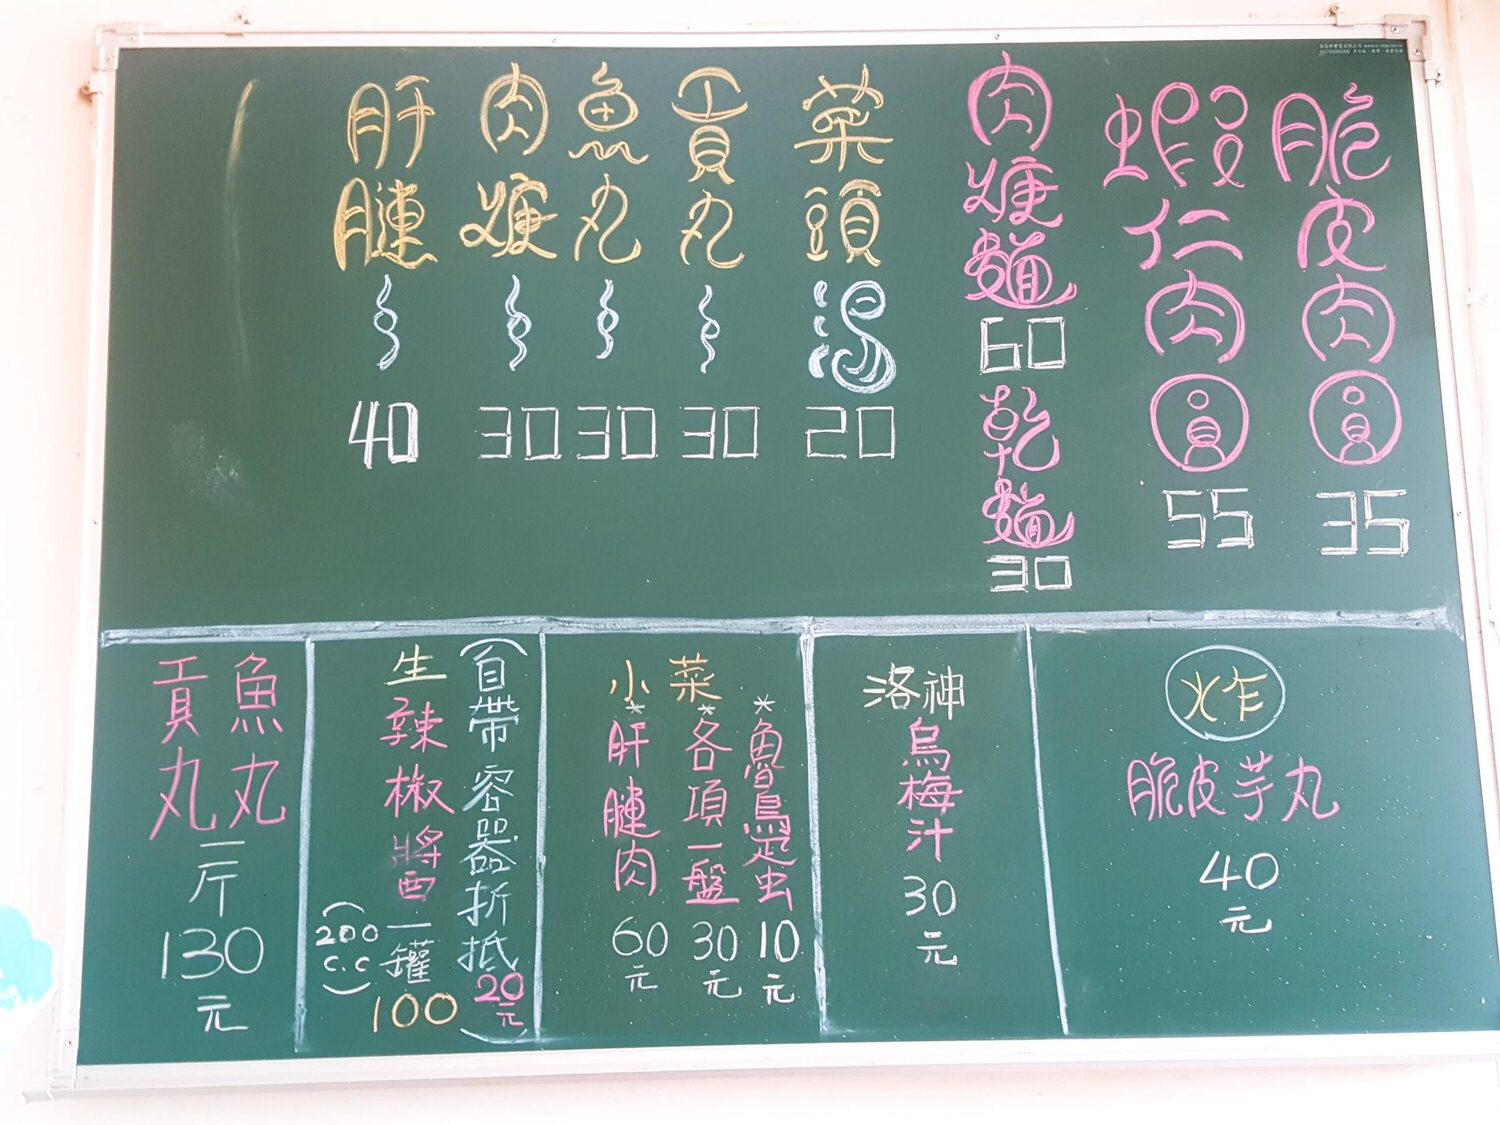 脆皮肉圓 35
蝦仁肉圓 55
肉焿麵 60
乾麵 30
菜頭湯 20
貢丸〻 30
魚丸〻 30
肉焿〻 30
肝腱〻 40
炸
脆皮芋丸
40
元
洛神
烏梅汁
30
元
小菜
*魯鳥蛋 10元
*各項一盤 30元
*肝腱肉 60元
(自帶容器折抵20元)
生辣椒醬一罐 100
(200 c.c)
魚丸
貢丸
一斤
130
元